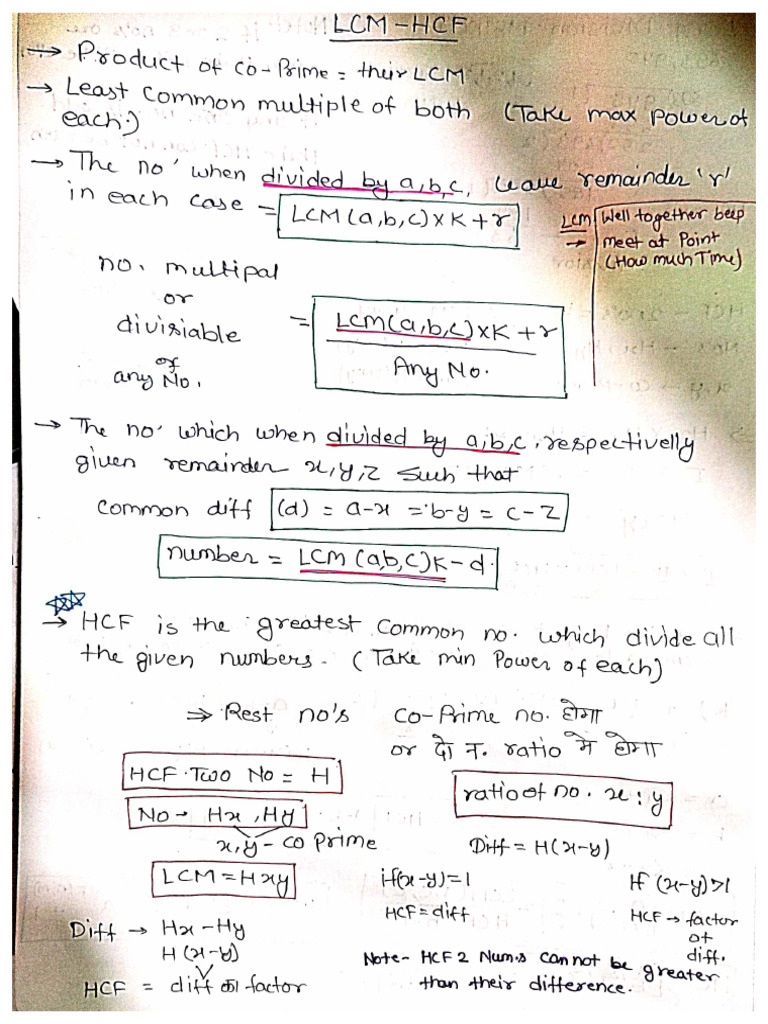 LCM-HCF
→ Product of co-Prime = their LCM
→ Least common multiple of both (Take max power of
each)
→ The no' when divided by a,b,c, leave remainder 'r'
in each case = LCM (a,b,c) x K + r
LCM Well together beep
→ meet at Point
(How much Time)
no. multipal
or
divisiable = LCM(a,b,c) x K + r
or
any No. Any No.
→ The no' which when divided by a,b,c, respectivelly
given remainder x,y,z such that
common diff (d) = a-x = b-y = c-z
number = LCM (a,b,c)K - d
→ HCF is the greatest common no. which divide all
the given numbers. (Take min Power of each)
⇒ Rest no's co-Prime no. होगा
or दो न. ratio मे होगा
HCF Two No = H
ratio of no. x : y
No → Hx, Hy
x,y - co prime
Diff = H(x-y)
LCM = Hxy
if(x-y)=1
If (x-y)>1
HCF = diff
HCF → factor
of
diff.
Diff → Hx - Hy
H (x-y)
HCF = diff का factor
Note- HCF 2 Num.s cannot be greater
than their difference.